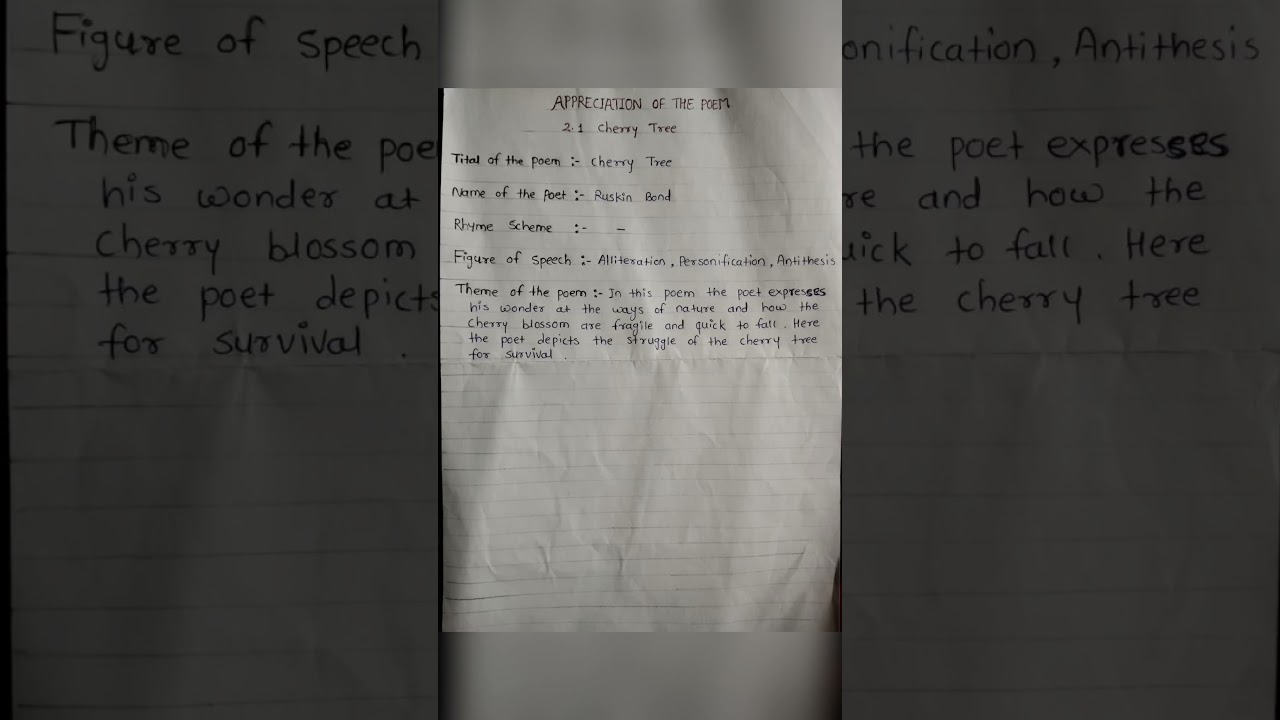 APPRECIATION OF THE POEM
2.1 Cherry Tree
Tital of the poem :- Cherry Tree
Name of the Poet :- Ruskin Bond
Rhyme Scheme :- -
Figure of Speech :- Alliteration, Personification, Antithesis
Theme of the poem :- In this poem the poet expresses
his wonder at the ways of nature and how the
cherry blossom are fragile and quick to fall. Here
the poet depicts the struggle of the cherry tree
for survival.